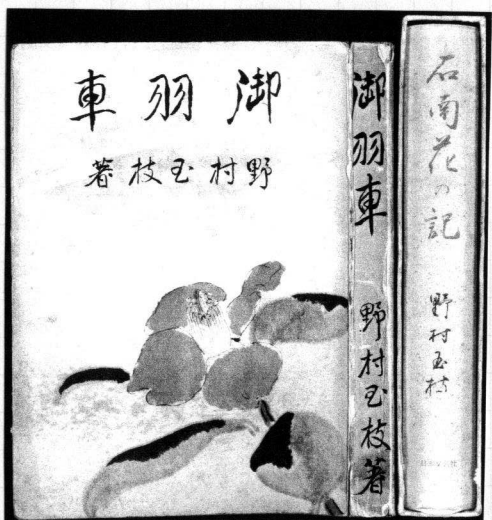 御羽車
野村玉枝著
御羽車
野村玉枝著
石南花の記
野村玉枝